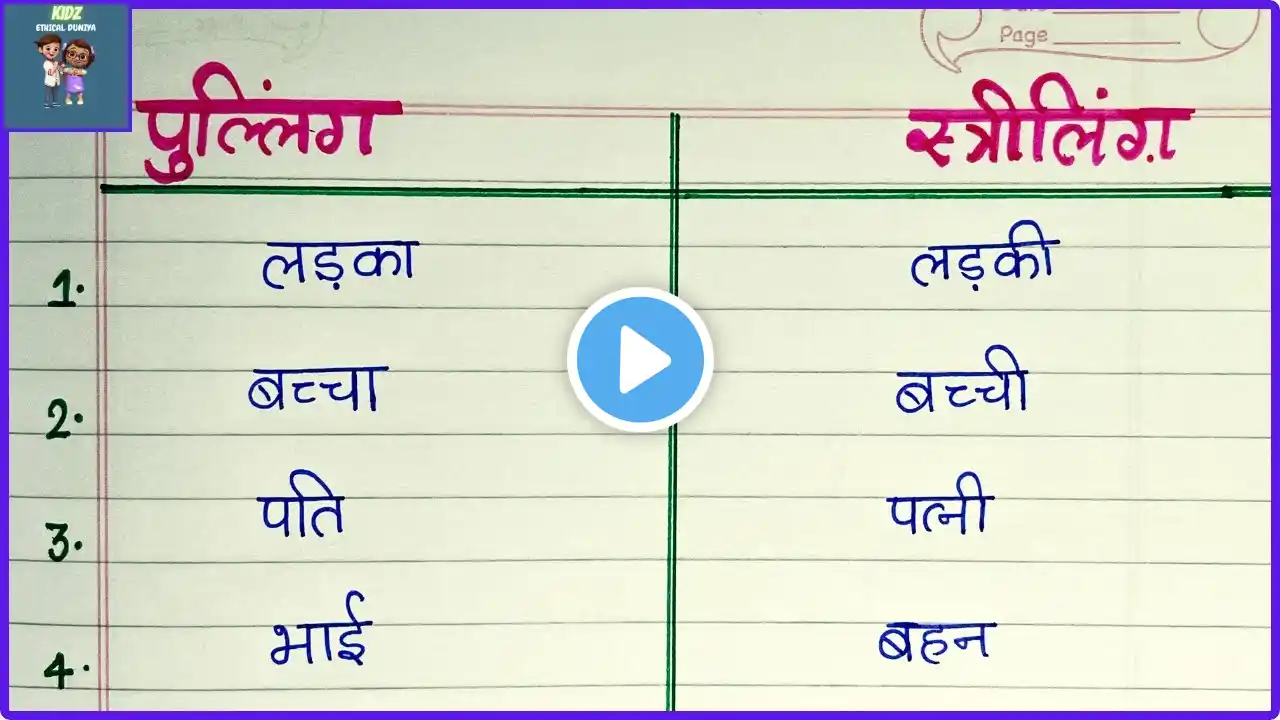 KIDZ
ETHICAL DUNIYA
Page
पुल्लिंग स्त्रीलिंग़
1. लड़का लड़की
2. बच्चा बच्ची
3. पति पत्नी
4. भाई बहन